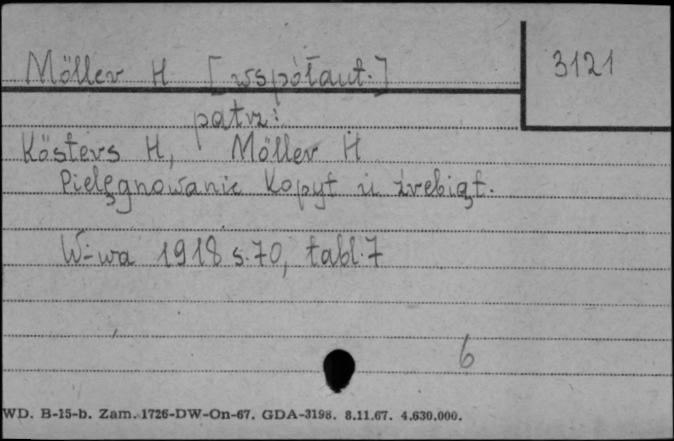 Möller H [współaut.]
3121
patrz:
Kösters H, Möller H
Pielęgnowanie Kopyt u źrebiąt.
W-wa 1918 s.70, tabl.7
6
WD. B-15-b. Zam. 1726-DW-On-67. GDA-3198. 8.11.67. 4.630.000.